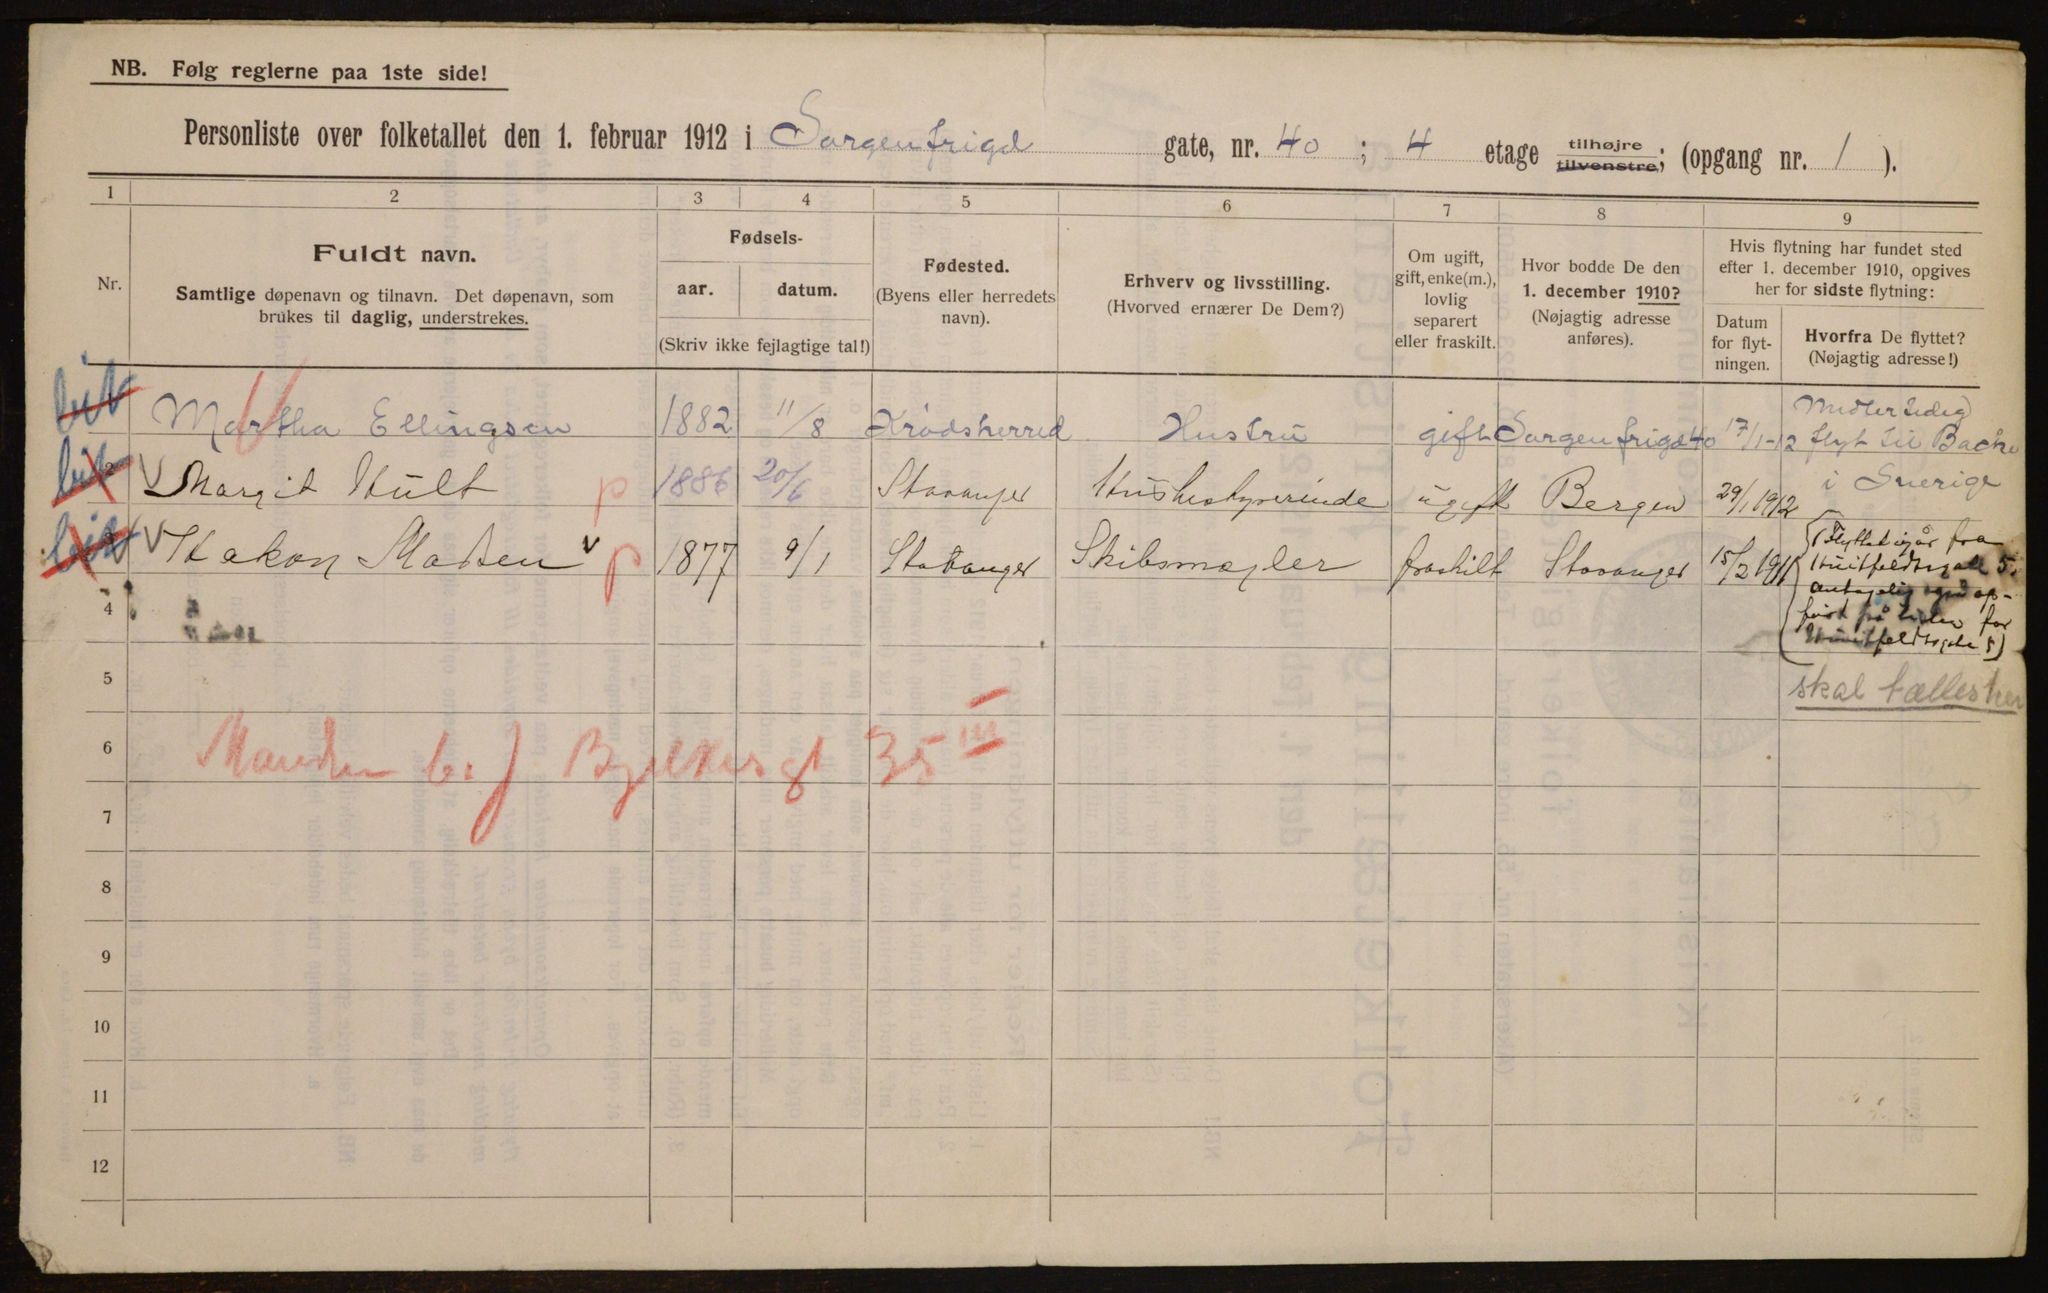 NB. Følg reglerne paa 1ste side!
Personliste over folketallet den 1. februar 1912 i Sorgenfrigd gate, nr. 40 ; 4 etage tilhøjre tilvenstre; (opgang nr. 1 ).
1 2 3 4 5 6 7 8 9
Nr.
Fuldt navn.
Samtlige døpenavn og tilnavn. Det døpenavn, som
brukes til daglig, understrekes.
Fødsels-
aar. datum.
(Skriv ikke fejlagtige tal!)
Fødested.
(Byens eller herredets
navn).
Erhverv og livsstilling.
(Hvorved ernærer De Dem?)
Om ugift,
gift, enke(m.),
lovlig
separert
eller fraskilt.
Hvor bodde De den
1. december 1910?
(Nøjagtig adresse
anføres).
Hvis flytning har fundet sted
efter 1. december 1910, opgives
her for sidste flytning:
Datum
for flyt-
ningen.
Hvorfra De flyttet?
(Nøjagtig adresse!)
Martha Ellingsen 1882 11/8 Krødsherred Hustru gift Sorgenfrigd 40 17/1-12 Midlertidig
flyt til Backe
i Sverige
2 Margit Hult p 1886 20/6 Stavanger Husbestyrerinde ugift Bergen 29/1 1912
Hakon Madsen p 1877 9/1 Stavanger Skibsmægler fraskilt Stavanger 15/2 1911
(Flyttet igår fra
Huitfeldtsgate 5.
antagelig også op-
ført på listen for
Huitfeldtsgate 5)
skal tælles her
4
5
6
Manden b. j Bjelkesgt 35 III
7
8
9
10
11
12